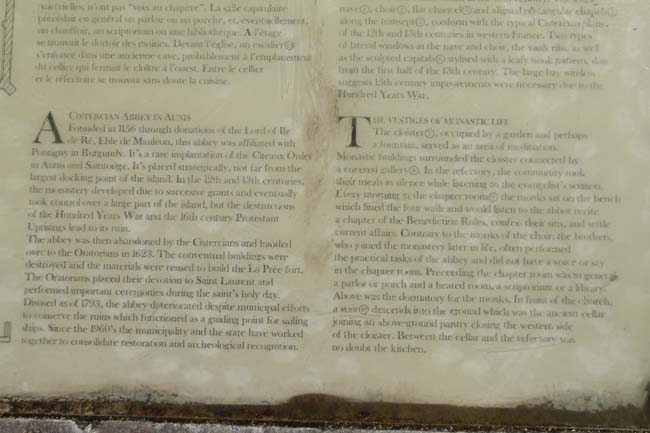 matérielles, n'ont pas "voix au chapitre". La salle capitulaire
précédait en général un parloir ou un porche, et, éventuellement,
un chauffoir, un scriptorium ou une bibliothèque. A l'étage
se trouvait le dortoir des moines. Devant l'église, un escalier
s'enfonce dans une ancienne cave, probablement à l'emplacement
du cellier qui fermait le cloître à l'ouest. Entre le cellier
et le réfectoire se trouvait sans doute la cuisine.
A CISTERCIAN ABBEY IN AUNIS
Founded in 1156 through donations of the Lord of Ile
de Ré, Eble de Mauléon, this abbey was affiliated with
Pontigny in Burgundy. It's a rare implantation of the Citeaux Order
in Aunis and Saintonge. It's placed strategically, not far from the
largest docking point of the island. In the 12th and 13th centuries,
the monastery developed due to succesive grants and eventually
took control over a large part of the island, but the destructions
of the Hundred Years War and the 16th century Protestant
Uprisings lead to its ruin.
The abbey was then abandoned by the Cistercians and handed
over to the Oratorians in 1623. The conventual buildings were
destroyed and the materials were reused to build the La Prée fort.
The Oratorians placed their devotion to Saint Laurent and
performed important ceremonies during the saint's holy day.
Disused as of 1793, the abbey deteriorated despite municipal efforts
to conserve the ruins which functioned as a guiding point for sailing
ships. Since the 1960's the municipality and the state have worked
together to consolidate restoration and archeological recognition.
nave, choir, flat chancel and aligned rectangular chapels
along the transept, conform with the typical Cistercian plans
of the 12th and 13th centuries in western France. Two types
of lateral windows in the nave and choir, the vault ribs, as well
as the sculpted capitals stylised with a leafy hook pattern, date
from the first half of the 13th century. The large bay window
suggests 15th century improvements were necessary due to the
Hundred Years War.
THE VESTIGES OF MONASTIC LIFE
The cloister, occupied by a garden and perhaps
a fountain, served as an area of meditation.
Monastic buildings surrounded the cloister connected by
a covered gallery. In the refectory, the community took
their meals in silence while listening to the evangelist's sermon.
Every morning in the chapter room the monks sat on the bench
which lined the four walls and would listen to the abbot recite
a chapter of the Benedictine Rules, confess their sins, and settle
current affairs. Contrary to the monks of the choir, the brothers,
who joined the monastery later in life, often performed
the practical tasks of the abbey and did not have a voice or say
in the chapter room. Preceeding the chapter room was in general
a parlor or porch and a heated room, a scriptorium or a library.
Above was the dormatory for the monks. In front of the church,
a stair descends into the ground which was the ancient cellar
joining an above-ground pantry closing the western side
of the cloister. Between the cellar and the refectory was
no doubt the kitchen.